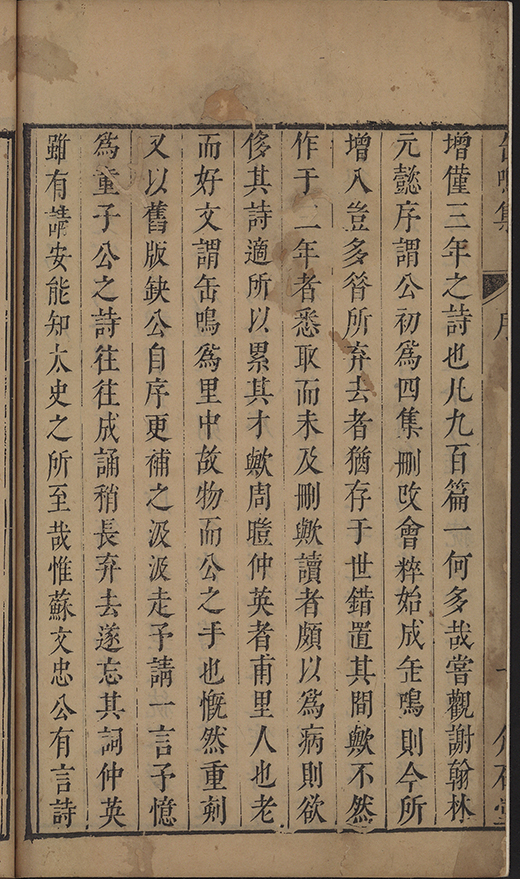 缶鳴集 序 一
增僅三年之詩也凡九百篇一何多哉嘗觀謝翰林
元懿序謂公初爲四集刪改會稡始成缶鳴則今所
增入豈多昝所弃去者猶存于世錯置其間歟不然
作于二年者悉取而未及刪歟讀者頗以爲病則欲
侈其詩適所以累其才歟周暟仲英者甫里人也老
而好文謂缶鳴爲里中故物而公之手也慨然重刻
又以舊版缺公自序更補之汲汲走予請一言予憶
爲童子公之詩往往成誦稍長弃去遂忘其詞仲英
雖有請安能知太史之所至哉惟蘇文忠公有言詩